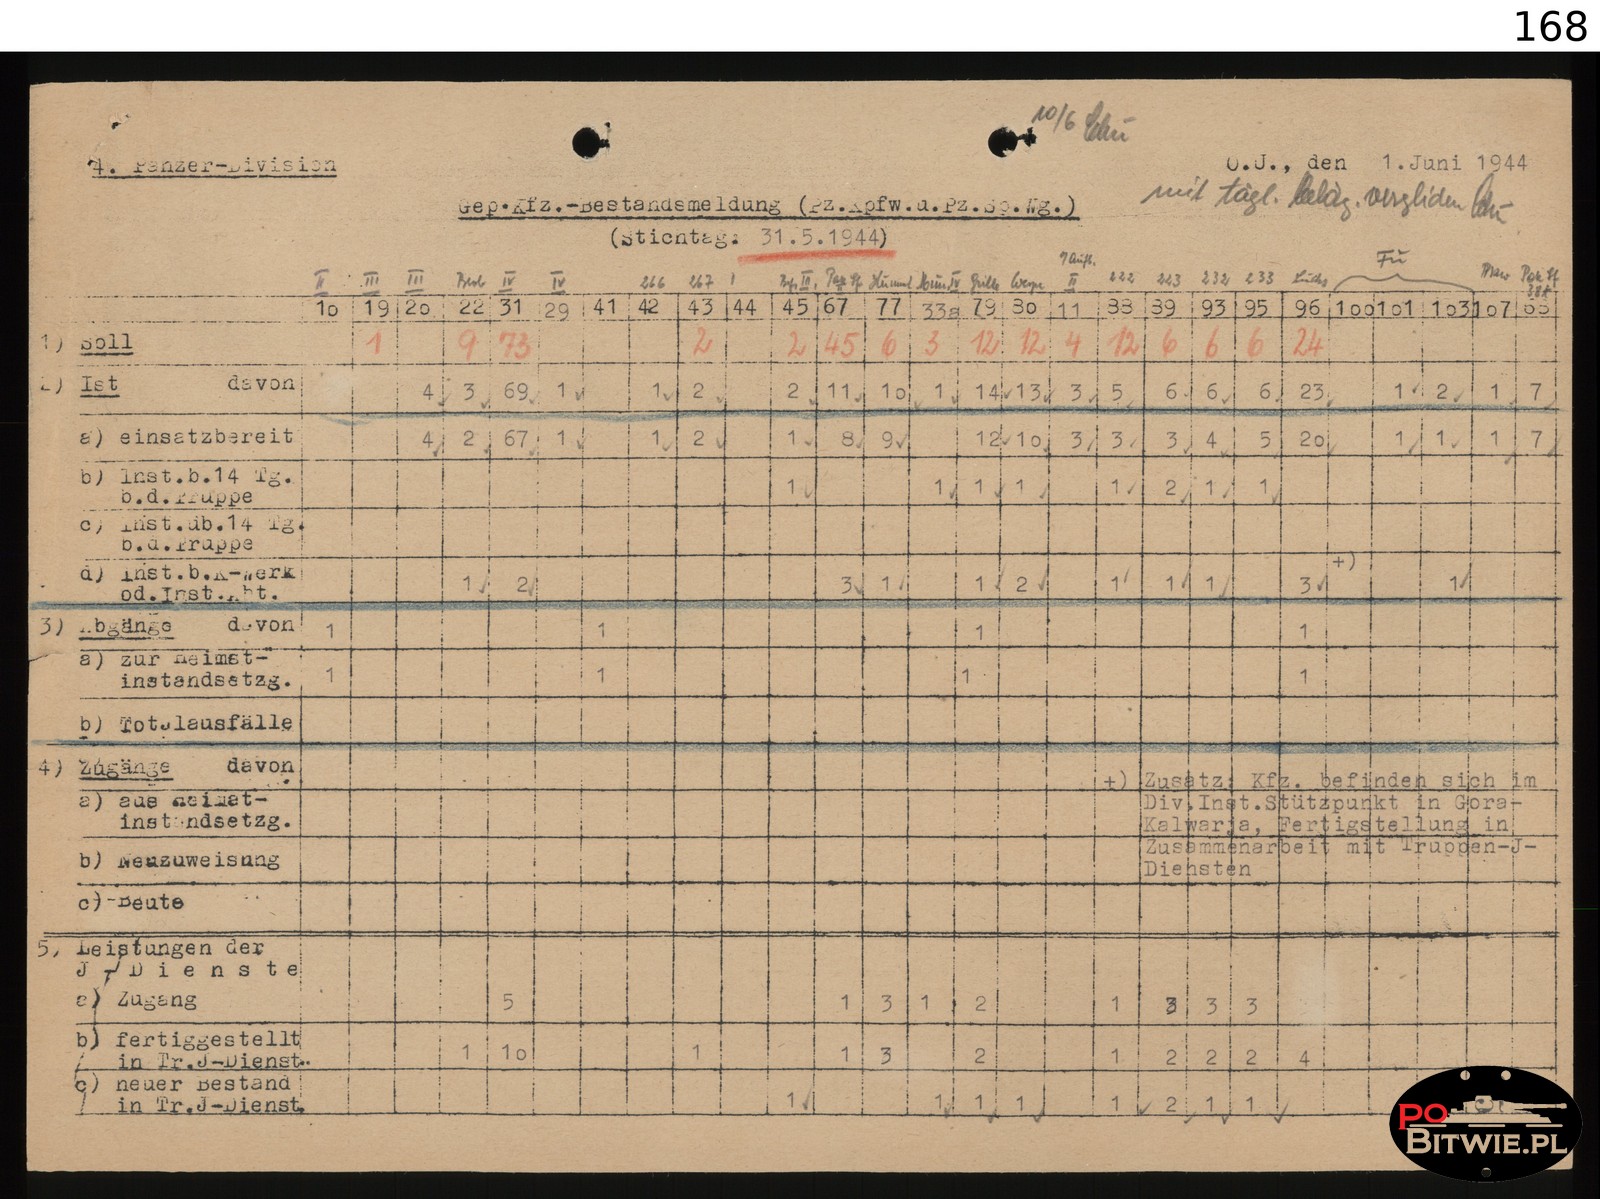 168
10/6
4. Panzer-Division
O.U., den 1.Juni 1944
mit tägl.
Gep.Kfz.-Bestandsmeldung (Pz.Kpfw.u.Pz.Sp.Wg.)
(Stichtag: 31.5.1944)
II III III IV IV 266 267 Hummel II 222 223 232 233 Luchs Fü
10 19 20 22 31 29 41 42 43 44 45 67 77 33a 79 80 11 88 89 93 95 96 100 101 103 107 65
1) Soll 1 9 73 2 2 45 6 3 12 12 4 12 6 6 6 24
2) Ist davon 4 3 69 1 1 2 2 11 10 1 14 13 3 5 6 6 6 23 1 2 1 7
a) einsatzbereit 4 2 67 1 1 2 1 8 9 12 10 3 3 3 4 5 20 1 1 1 7
b) Inst.b.14 Tg.
b.d.Truppe 1 1 1 1 1 2 1 1
c) Inst.üb.14 Tg.
b.d.Truppe
+)
d) Inst.b.K-Werk
od.Inst.Abt. 1 2 3 1 1 2 1 1 1 3 1
3) Abgänge davon 1 1 1 1
a) zur Heimat-
instandsetzg. 1 1 1 1
b) Totalausfälle
4) Zugänge davon
a) aus Heimat-
instandsetzg.
b) Neuzuweisung
c) Beute
+) Zusatz: Kfz. befinden sich im
Div.Inst.Stützpunkt in Gora-
Kalwarja, Fertigstellung in
Zusammenarbeit mit Truppen-J-
Diensten
5) Leistungen der
J - D i e n s t e
a) Zugang 5 1 3 1 2 1 3 3 3
b) fertiggestellt
in Tr.J-Dienst. 1 10 1 1 3 2 1 2 2 2 4
c) neuer Bestand
in Tr.J-Dienst. 1 1 1 1 1 2 1 1
PO
BITWIE.PL